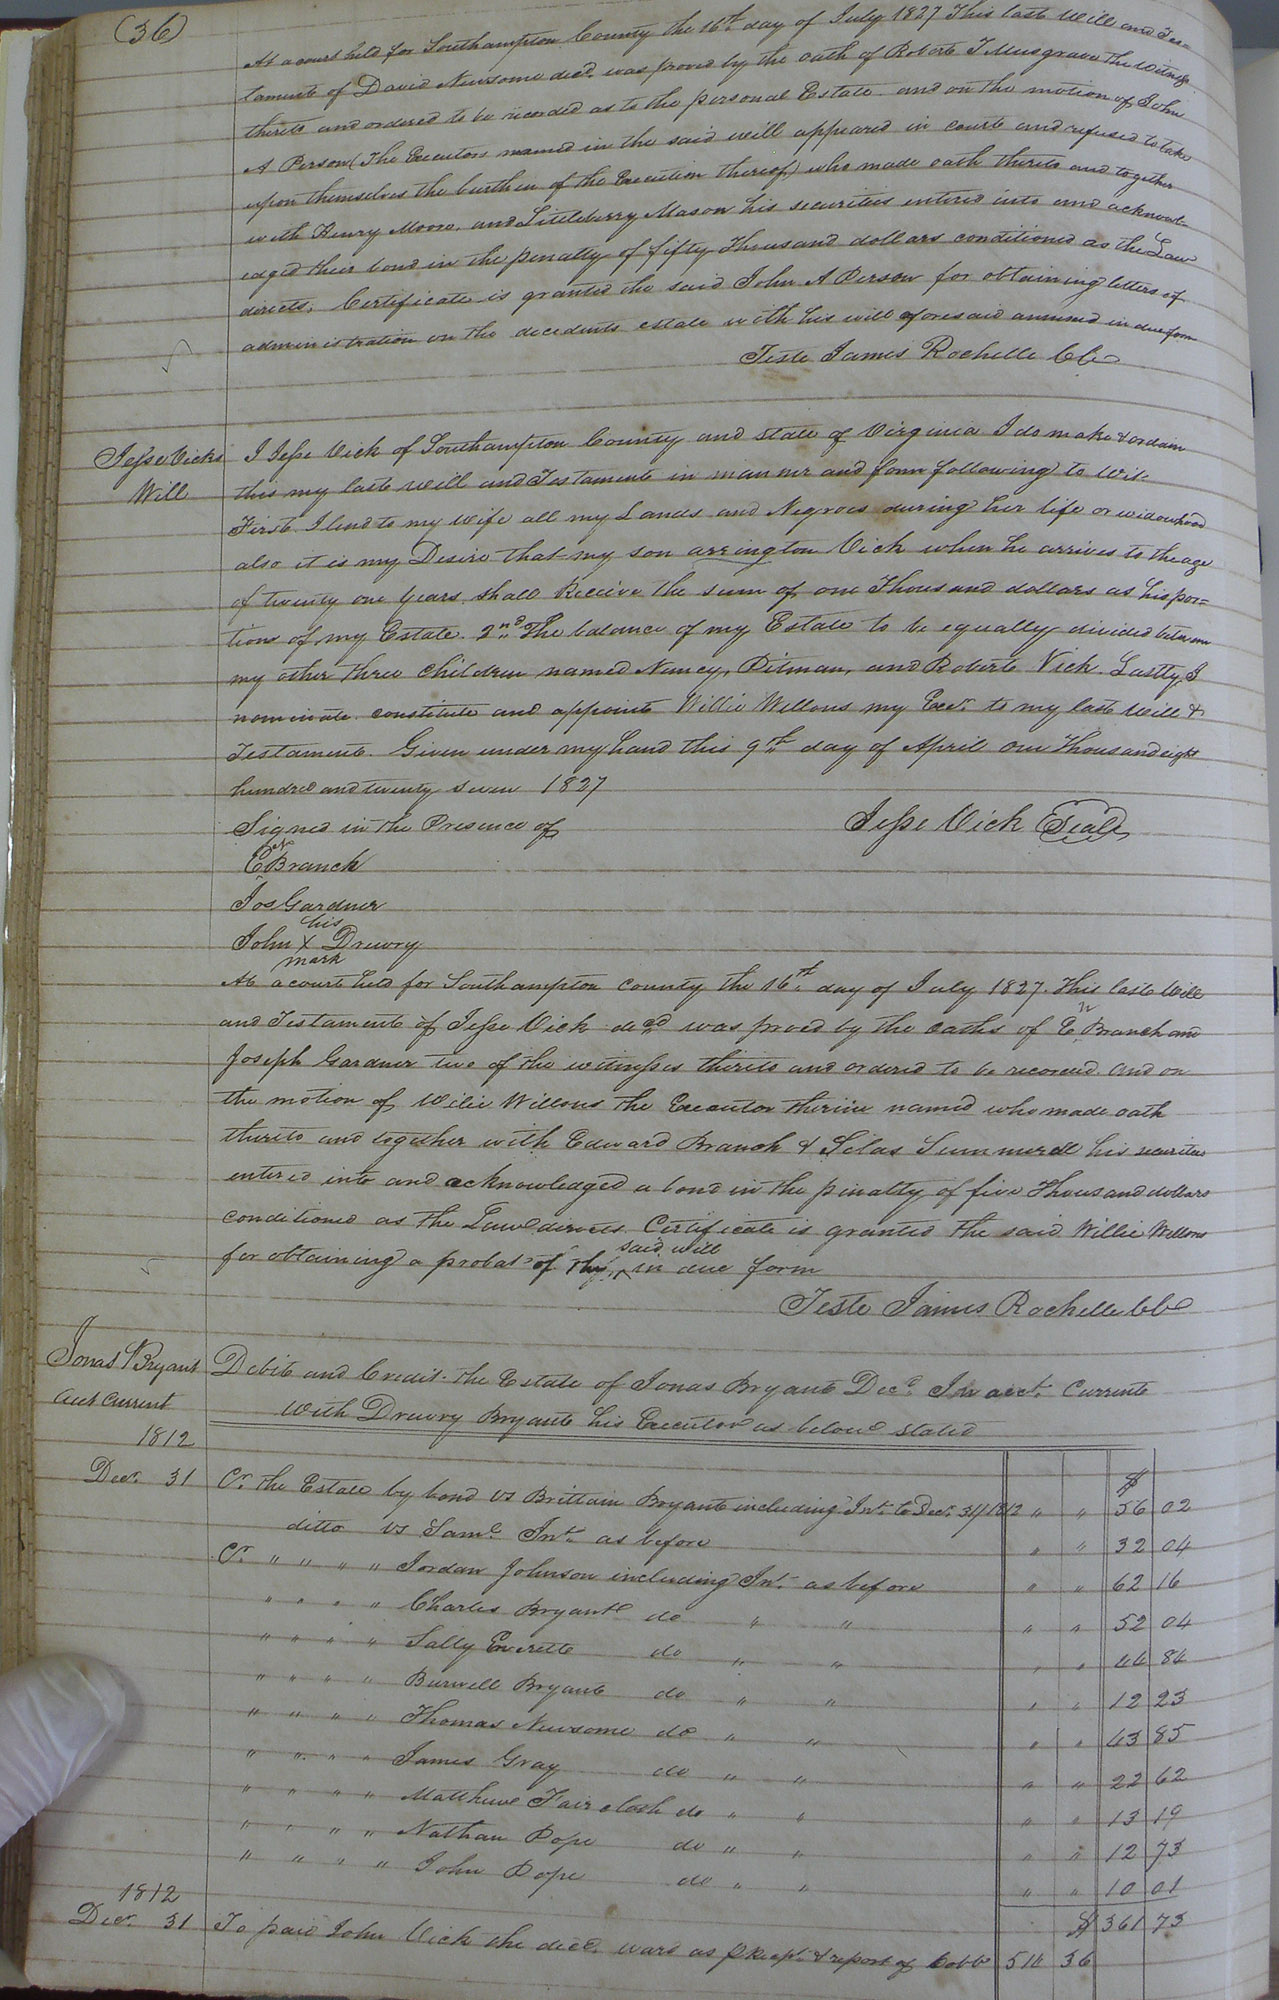 (36)
At a court held for Southampton County the 16th day of July 1827 This last Will and Tes=
tament of David Newsome decd. was proved by the oath of Robert T Musgrave the witness
thereto and ordered to be recorded as to the personal Estate and on the motion of John
A Person (The Executors named in the said will appeared in court and refused to take
upon themselves the burthen of the Execution thereof) who made oath thereto and together
with Henry Moore, and Littleberry Mason his securities entered into and acknowl-
edged their bond in the penalty of fifty Thousand dollars conditioned as the Law
directs, Certificate is granted the said John A Person for obtaining letters of
administration on the decedents estate with his will aforesaid annexed in due form
Teste James Rochelle CC
Jesse Vicks
Will
I Jesse Vick of Southampton County and state of Virginia I do make & ordain
this my last will and Testament in manner and form following to Wit.
First. I lend to my wife all my Lands and Negroes during her life or widowhood
also it is my Desire that my son arrington Vick when he arrives to the age
of twenty one years shall Receive the sum of one Thousand dollars as his por=
tion of my Estate. 2nd The balance of my Estate to be equally divided between
my other three children named Nancy, Pitman, and Robert Vick. Lastly, I
nominate constitute and appoint Willie Wellons my Exer. to my last will &
Testament. Given under my hand this 9th day of April one Thousand eight
hundred and twenty seven 1827
Signed in the Presence of
Jesse Vick Seal
E Branch
Jos Gardner
his
John X Drewry
mark
At a court held for Southampton county the 16th day of July 1827. This last Will
and Testament of Jesse Vick decd was proved by the oaths of E Branch and
Joseph Gardner two of the witnesses thereto and ordered to be recorded and on
the motion of Wilie Wellons the Executor therein named who made oath
thereto and together with Edward Branch & Silas Summerell his securities
entered into and acknowledged a bond in the penalty of five Thousand dollars
conditioned as the Law directs Certificate is granted the said Willie Wellons
for obtaining a probat of the said will in due form
Teste James Rochelle CC
Jonas Bryant
acct Current
Debit and Credit. the Estate of Jonas Bryant Decd. In acct. Current
With Drewry Bryant his Executor as below stated
1812
$
Decr. 31 Cr. the Estate by bond vs Brittain Bryant including Int. to Decr. 31/1812 " " 56 02
ditto vs Same Int. as before " " 32 04
Cr. " " " " Jordan Johnson including Int. as before " " 62 16
" " " " Charles Bryant do " " " " 52 04
" " " " Sally Everett do " " " " 44 84
" " " " Burwell Bryant do " " " " 12 23
" " " " Thomas Newsome do " " " " 43 85
" " " " James Gray do " " " " 22 62
" " " " Matthew Faircloth do " " " " 13 19
" " " " Nathan Pope do " " " " 12 73
" " " " John Pope do " " " " 10 01
$ 361 73
1812
Decr. 31 To paid John Vick the decd. ward as p Recpt. & report of Cobb 511 36